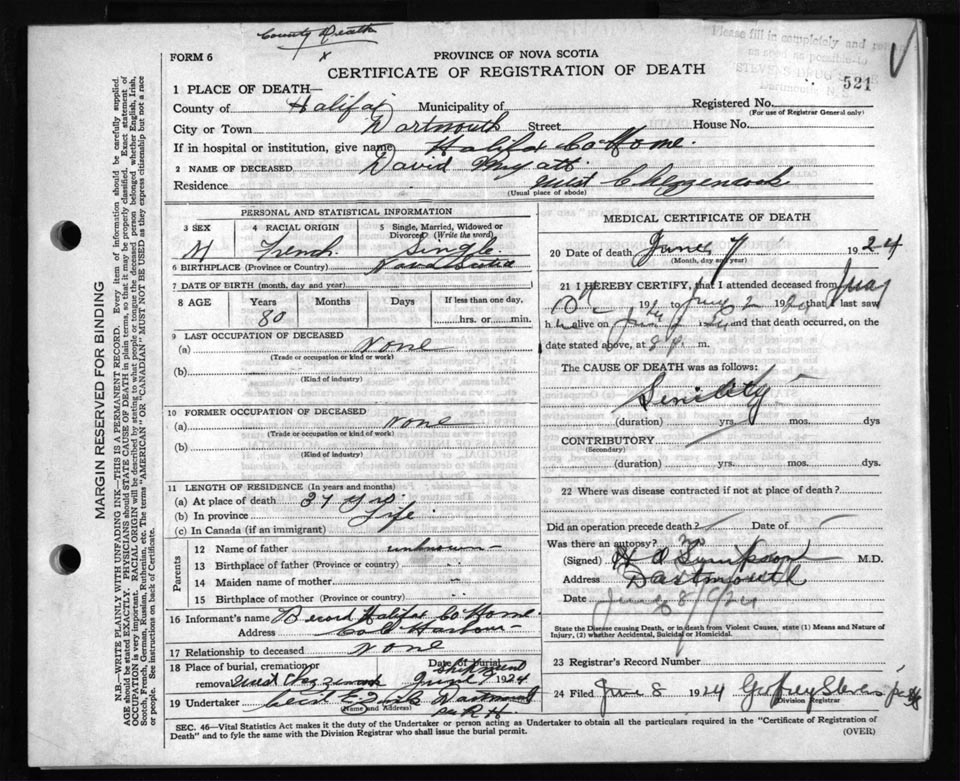 County Death
x
Please fill in completely and
as soon as possible to
STEVENS DRUG STORE
Dartmouth N.
521
FORM 6
PROVINCE OF NOVA SCOTIA
CERTIFICATE OF REGISTRATION OF DEATH
1 PLACE OF DEATH—
County of Halifax Municipality of Registered No.
(For use of Registrar General only)
City or Town Dartmouth Street House No.
If in hospital or institution, give name Halifax Co Home.
2 NAME OF DECEASED David Myatt
Residence West Chezzencook
(Usual place of abode)
PERSONAL AND STATISTICAL INFORMATION
3 SEX
M
4 RACIAL ORIGIN
French
5 Single, Married, Widowed or Divorced (Write the word)
Single
6 BIRTHPLACE (Province or Country) Nova Scotia
7 DATE OF BIRTH (month, day and year)
8 AGE Years Months Days If less than one day,
80 hrs. or min.
9 LAST OCCUPATION OF DECEASED
(a) None
(Trade or occupation or kind or work)
(b)
(Kind of industry)
10 FORMER OCCUPATION OF DECEASED
(a) None
(Trade or occupation or kind of work)
(b)
(Kind of industry)
11 LENGTH OF RESIDENCE (In years and months)
(a) At place of death 37 yrs.
(b) In province Life
(c) In Canada (if an immigrant)
Parents
12 Name of father unknown
13 Birthplace of father (Province or country) "
14 Maiden name of mother "
15 Birthplace of mother (Province or country) "
16 Informant's name Record Halifax Co Home.
Address Cole Harbour
17 Relationship to deceased None
18 Place of burial, cremation or removal West Chezzencook
Date of burial
June 1924
19 Undertaker Cecil E. Dartmouth
(Name and Address)
MEDICAL CERTIFICATE OF DEATH
20 Date of death June 7 1924
(Month, day and year)
21 I HEREBY CERTIFY, that I attended deceased from
192 to June 2 192 that I last saw
h alive on June and that death occurred, on the
date stated above, at 8 p. m.
The CAUSE OF DEATH was as follows:
Senility
(duration) yrs. mos. dys
CONTRIBUTORY
(Secondary)
(duration) yrs. mos. dys.
22 Where was disease contracted if not at place of death?
Did an operation precede death? Date of
Was there an autopsy? no
(Signed) H A Simpson M.D.
Address Dartmouth
Date June 8/1924
State the Disease causing Death, or in death from Violent Causes, state (1) Means and Nature of
Injury, (2) whether Accidental, Suicidal or Homicidal.
23 Registrar's Record Number
24 Filed June 8 1924 Godfrey Stevens
Division Registrar
SEC. 46—Vital Statistics Act makes it the duty of the Undertaker or person acting as Undertaker to obtain all the particulars required in the "Certificate of Registration of
Death" and to fyle the same with the Division Registrar who shall issue the burial permit.
(OVER)
MARGIN RESERVED FOR BINDING
N.B.—WRITE PLAINLY WITH UNFADING INK—THIS IS A PERMANENT RECORD. Every item of information should be carefully supplied.
AGE should be stated EXACTLY. PHYSICIANS should STATE CAUSE OF DEATH in plain terms, so that it may be properly classified. Exact statement of
OCCUPATION is very important. RACIAL ORIGIN will be described by stating to what people or tongue the deceased person belonged whether English, Irish,
Scotch, French, German, Russian, Ruthenian, etc. The terms "AMERICAN" OR "CANADIAN" MUST NOT BE USED as they express citizenship but not a race
or people. See instructions on back of Certificate.